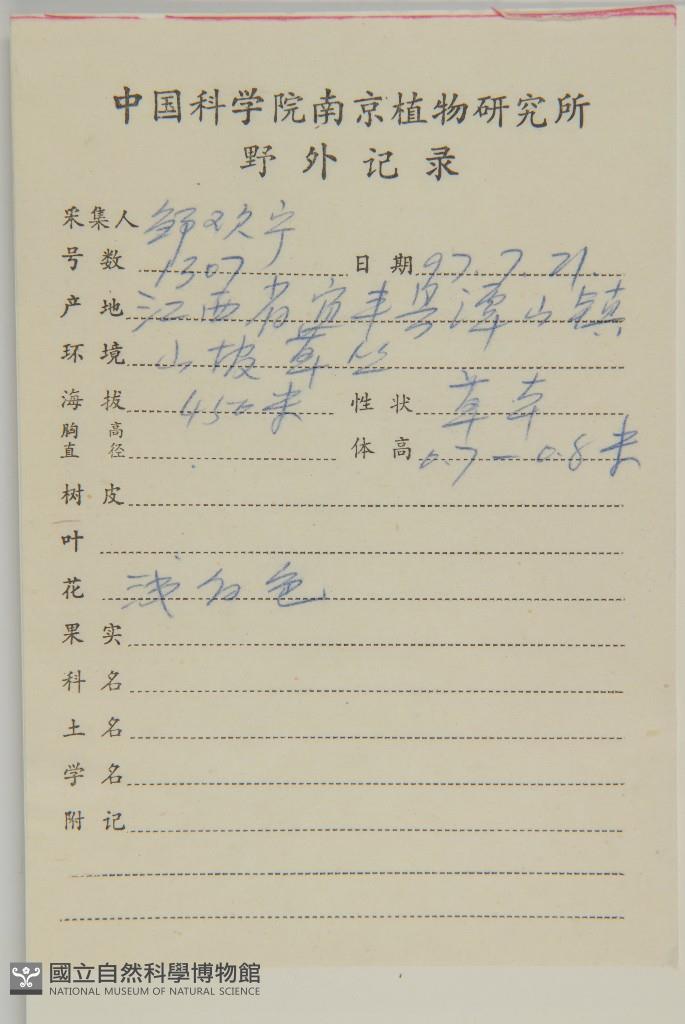 中国科学院南京植物研究所
野外记录
采集人 邹欢宁
号数 1307 日期 97.7.21.
产地 江西省宜丰县潭山镇
环境 山坡草丛
海拔 450米 性状 草本
胸高直径 体高 0.7—0.8米
树皮
叶
花 浅红色
果实
科名
土名
学名
附记
國立自然科學博物館
NATIONAL MUSEUM OF NATURAL SCIENCE